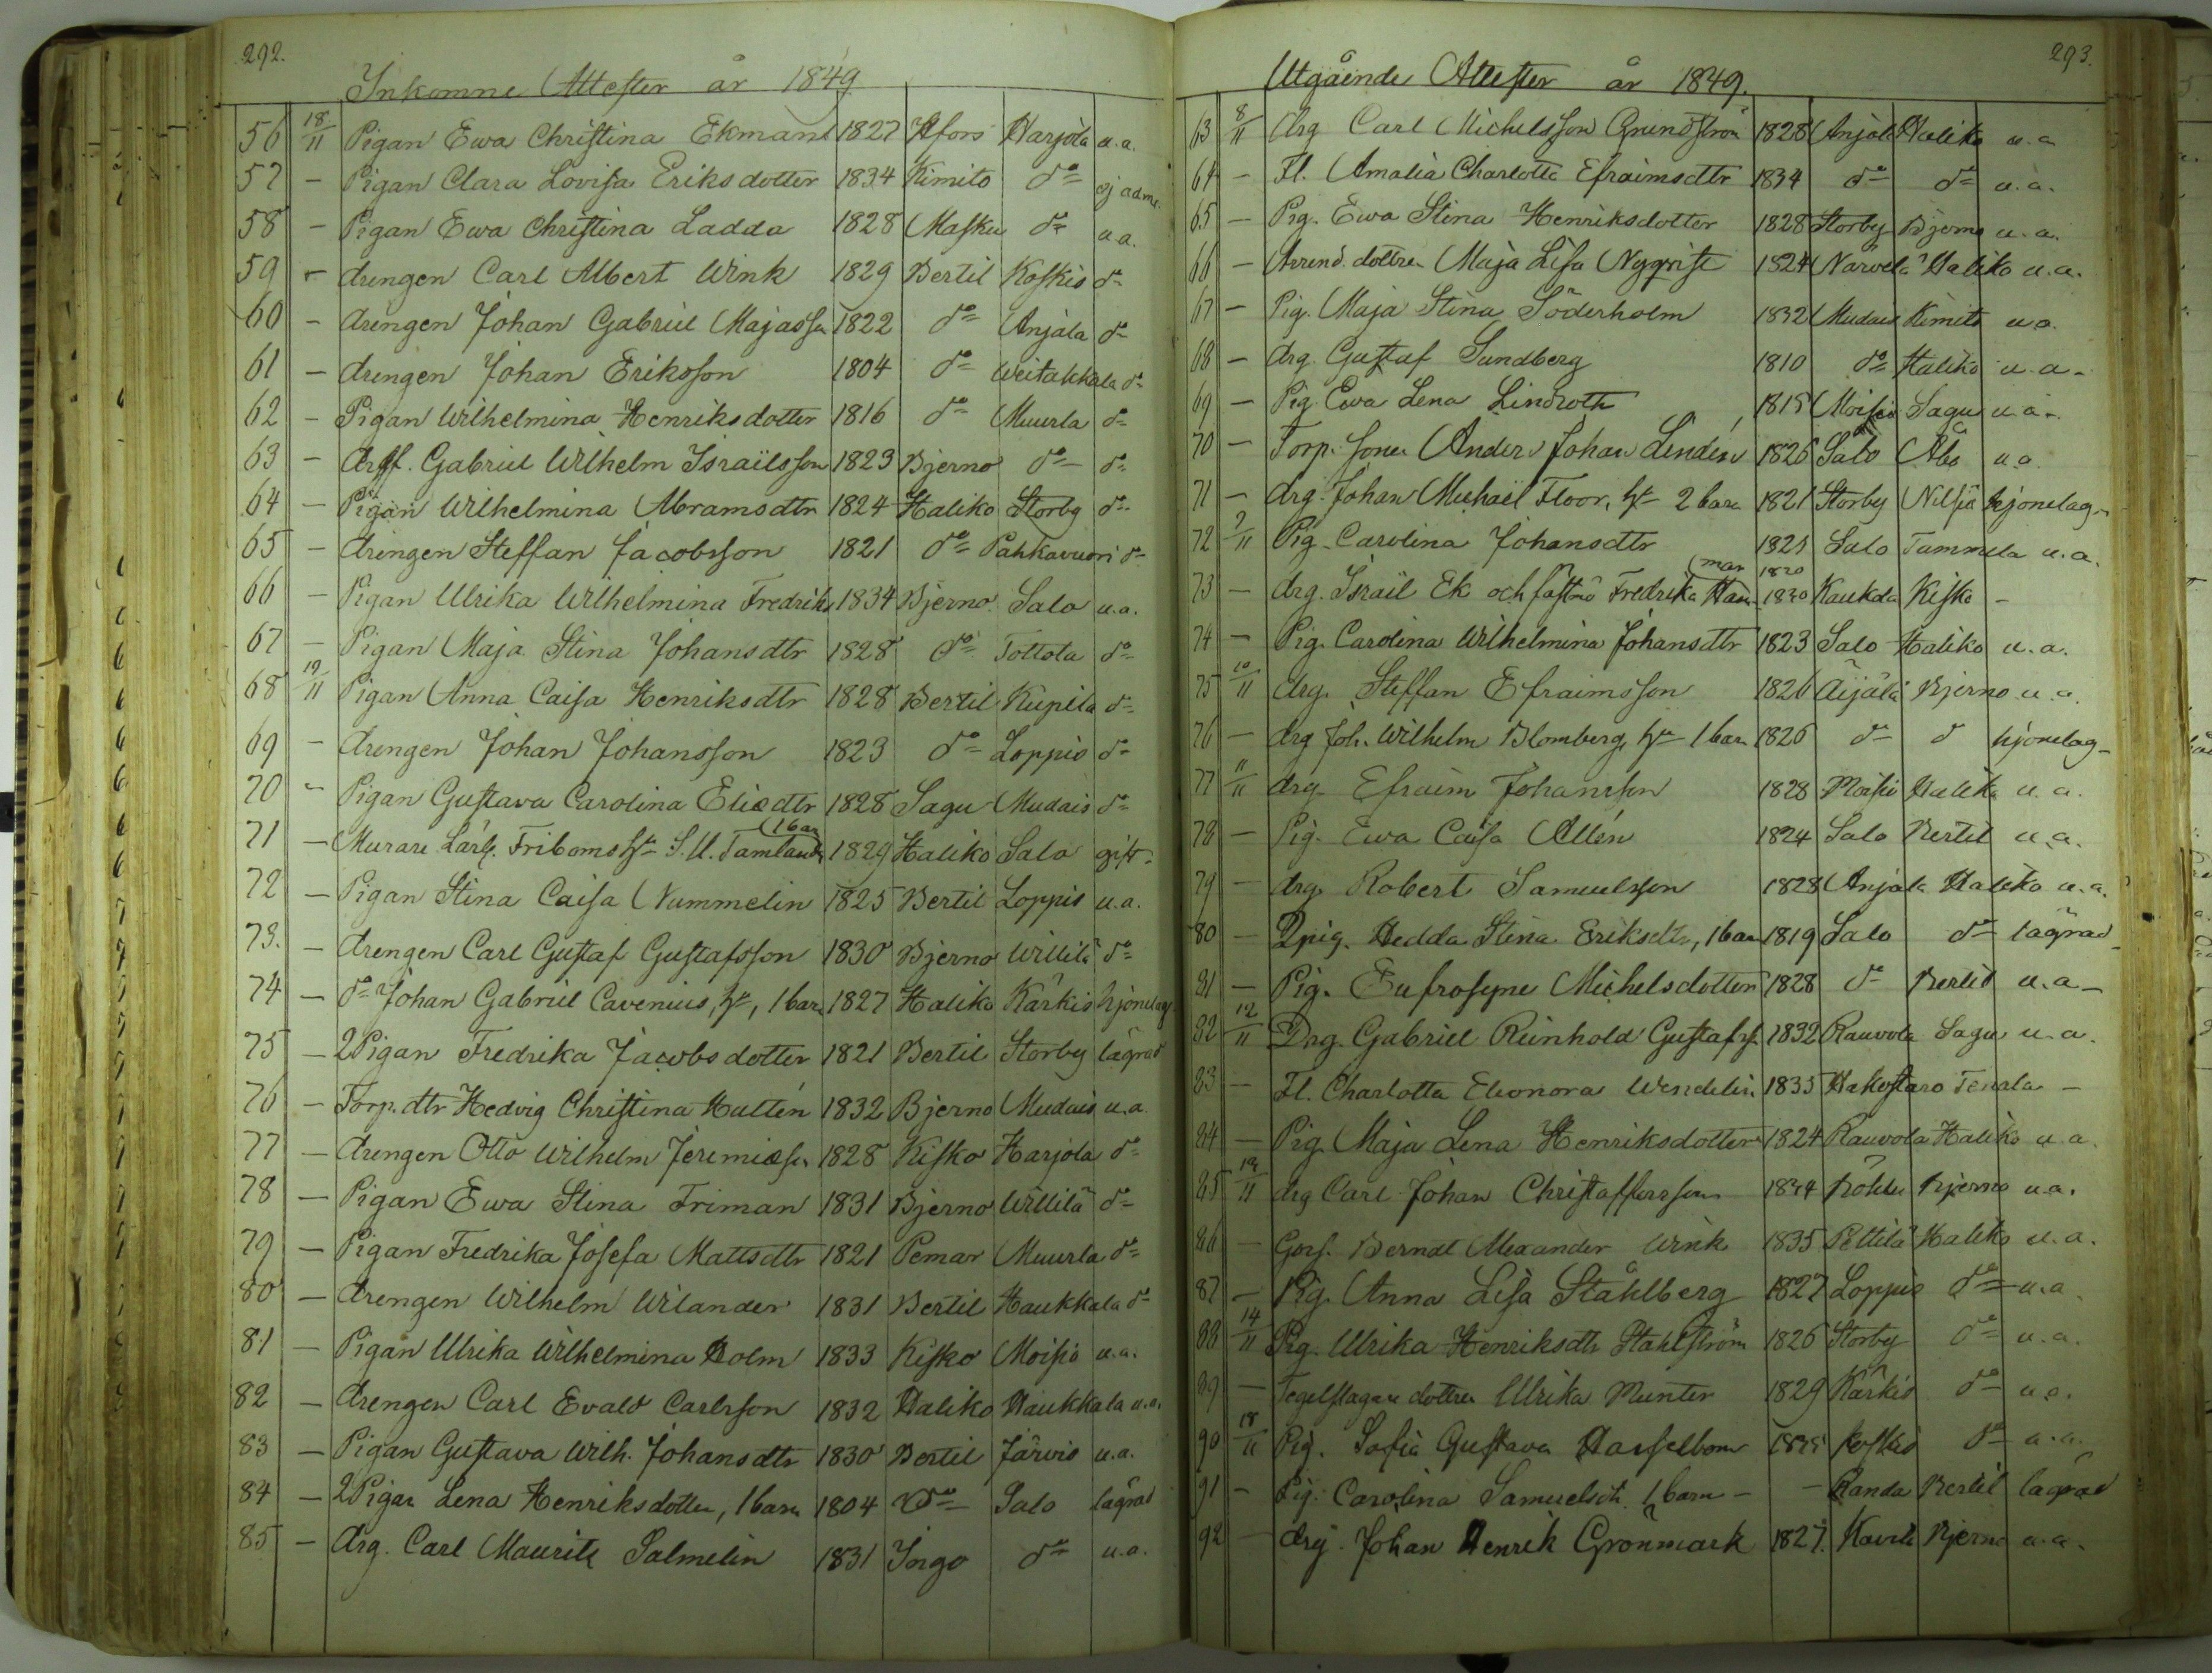 292.
Inkomne Attester år 1849
56 18/11 Pigan Ewa Christina Ekman 1827 Hfors Harjola u.a.
57 - Pigan Clara Lovisa Eriksdotter 1834 Kimito do ej adm.
58 - Pigan Ewa Christina Ladda 1828 Masku do u.a.
59 - drengen Carl Albert Wink 1829 Bertil Koskis do
60 - drengen Johan Gabriel Majasson 1822 do Anjala do
61 - drengen Johan Eriksson 1804 do Weitakkala do
62 - Pigan Wilhelmina Henriksdotter 1816 do Muurla do
63 - Gabriel Wilhelm Israilsson 1823 Bjerno do do
64 - Pigan Wilhelmina Abramsdtr 1824 Haliko Storby do
65 - drengen Steffan Jacobsson 1821 do Pahkavuori do
66 - Pigan Ulrika Wilhelmina Fredriks 1834 Bjerno Salo u.a.
67 - Pigan Maja Stina Johansdtr 1828 do Tottola do
68 19/11 Pigan Anna Caisa Henriksdtr 1828 Bertil Kupila do
69 - drengen Johan Johansson 1823 do Loppis do
70 - Pigan Gustava Carolina Eliædtr 1828 Sagu Mudais do
71 - Murare Lärl. Friboms hu S. U. Tamlander 1 barn 1829 Haliko Salo gift
72 - Pigan Stina Caisa Nummelin 1825 Bertil Loppis u.a.
73. - drengen Carl Gustaf Gustafsson 1830 Bjerno Willilä do
74 - do Johan Gabriel Cavenius, hu, 1 barn 1827 Haliko Kärkis hjonelag
75 - 2 Pigan Fredrika Jacobsdotter 1821 Bertil Storby lägrad
76 - Torp. dtr Hedvig Christina Hultén 1832 Bjerno Mudais u.a.
77 - drengen Otto Wilhelm Jeremiæson 1828 Kisko Harjola do
78 - Pigan Ewa Stina Friman 1831 Bjerno Willilä do
79 - Pigan Fredrika Josefa Mattsdtr 1821 Pemar Muurla do
80 - drengen Wilhelm Wilander 1831 Bertil Haukkala do
81 - Pigan Ulrika Wilhelmina Holm 1833 Kisko Moisio u.a.
82 - drengen Carl Evald Carlsson 1832 Haliko Haukkala u.a.
83 - Pigan Gustava Wilh. Johansdtr 1830 Bertil Järvis u.a.
84 - 2 Pigan Lena Henriksdotter, 1 barn 1804 do Salo lägrad
85 - drg. Carl Mauritz Salmelin 1831 Ingo do u.a.
293.
Utgående Attester år 1849.
63 8/11 drg Carl Michelsson Grundström 1828 Anjala Haliko u.a
64 - Fl. Amalia Charlotta Efraimsdtr 1834 do do u.a.
65 - Pig. Ewa Stina Henriksdotter 1828 Storby Bjerno u.a.
66 - Arrend. dottren Maja Lisa Nyqvist 1824 Narvela Haliko u.a.
67 - Pig. Maja Stina Söderholm 1832 Mudais Kimito u.a.
68 - drg. Gustaf Sundberg 1810 do Haliko u.a.
69 - Pig Ewa Lena Lindroth 1815 Moisio Sagu u.a.
70 - Torp. sonen Anders Johan Lindén 1826 Salo Åbo u.a.
71 - drg. Johan Michaël Floor, hu 2 barn 1821 Storby Nilsiä hjonelag
72 9/11 Pig. Carolina Johansdtr 1825 Salo Tammela u.a.
73 - drg. Israil Ek och fästmö Fredrika Hamman 1820 1830 Kaukola Kisko -
74 - Pig. Carolina Wilhelmina Johansdtr 1823 Salo Haliko u.a.
75 10/11 drg. Steffan Efraimsson 1826 Äijälä Bjerno u.a.
76 - drg Joh. Wilhelm Blomberg, hu 1 barn 1826 do d hjonelag
77 11/11 drg. Efraim Johansson 1828 Moisio Haliko u.a.
78 - Pig. Ewa Caisa Allén 1824 Salo Bertil u.a.
79 - drg. Robert Samuelsson 1828 Anjala Haliko u.a.
80 - 2 pig. Hedda Stina Eriksdtr, 1 barn 1819 Salo do lägrad
81 - Pig. Eufrosyne Michelsdotter 1828 do Bertil u.a
82 12/11 Drg. Gabriel Reinhold Gustafss. 1832 Rauvola Sagu u.a.
83 - Fl. Charlotta Eleonora Wendelin 1835 Hakostaro Tenala -
84 - Pig. Maja Lena Henriksdotter 1824 Rauvola Haliko u.a.
85 13/11 drg Carl Johan Christaffersson 1834 Bjerno u.a.
86 - Goss. Berndt Alexander Wink 1835 Pettilä Haliko u.a.
87 - Pig. Anna Lisa Ståhlberg 1827 Loppis do u.a.
88 14/11 Pig. Ulrika Henriksdtr Stahlström 1826 Storby do u.a.
89 - Tegelslagare dottren Ulrika Munter 1829 Kärkis do u.a.
90 18/11 Pig. Sofia Gustava Hasselbom Koskis do u.a.
91 - Pig. Carolina Samuelsdt. 1 barn - - Randa Bertil lägrad
92 - drg. Johan Henrik Grönmark 1827. Bjerno u.a.